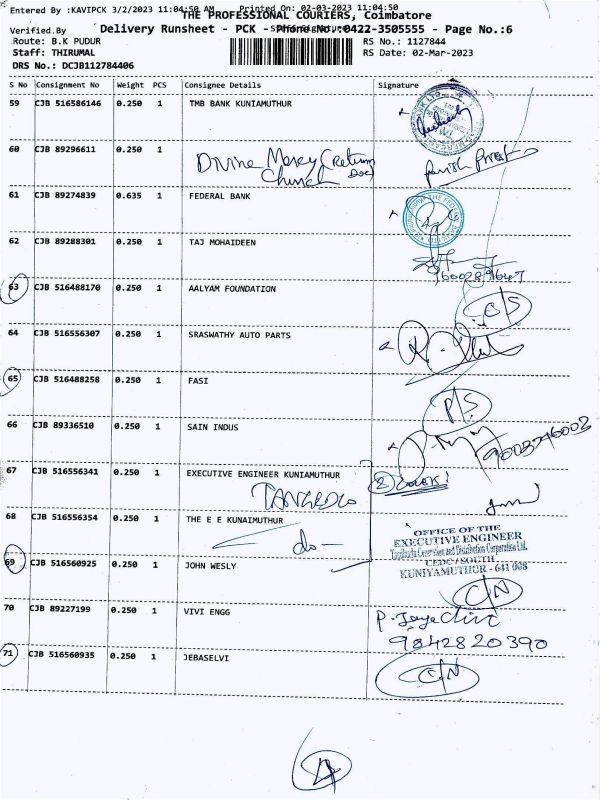 Entered By :KAVIPCK 3/2/2023 11:04:50 AM Printed On: 02-03-2023 11:04:50
THE PROFESSIONAL COURIERS, Coimbatore
Verified.By
Delivery Runsheet - PCK - Phone No.:0422-3505555 - Page No.:6
Route: B.K PUDUR RS No.: 1127844
Staff: THIRUMAL RS Date: 02-Mar-2023
DRS No.: DCJB112784406
S No Consignment No Weight PCS Consignee Details Signature
59 CJB 516586146 0.250 1 TMB BANK KUNIAMUTHUR
60 CJB 89296611 0.250 1 Divine Mercy (Return
Church Doc)
Parish Priest
61 CJB 89274839 0.635 1 FEDERAL BANK
62 CJB 89288301 0.250 1 TAJ MOHAIDEEN
9600289647
63 CJB 516488170 0.250 1 AALYAM FOUNDATION
C/S
64 CJB 516556307 0.250 1 SRASWATHY AUTO PARTS
65 CJB 516488258 0.250 1 FASI
P/S
66 CJB 89336510 0.250 1 SAIN INDUS
67 CJB 516556341 0.250 1 EXECUTIVE ENGINEER KUNIAMUTHUR
TANGEDCO
68 CJB 516556354 0.250 1 THE E E KUNAIMUTHUR
do -
OFFICE OF THE
EXECUTIVE ENGINEER
Tamilnadu Generation and Distribution Corporation Ltd.
CEDC / SOUTH
KUNIYAMUTHUR - 641 008
69 CJB 516560925 0.250 1 JOHN WESLY
C/N
70 CJB 89227199 0.250 1 VIVI ENGG
P. Jaya
9842820390
71 CJB 516560935 0.250 1 JEBASELVI
C/N